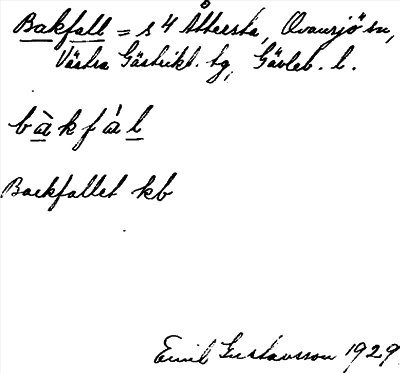 Bakfall = s 4 Åttersta, Ovansjö sn,
Västra Gästrikl. tg, Gävleb. l.
bàkfál
Backfallet kb
Emil Gustavsson 1929